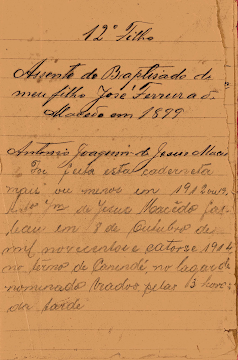 12º Filho
Assento do Baptisado de
meu filho José Ferreira de
Macêdo em 1899
Antonio Joaquim de Jesus Mace
Foi feita esta caderneta
mais ou menos em 1912
de Jesus Macêdo fas
em 8 de Outubro de
mil novecentos e catorze 1914
no têrmo de Canindé, no lugar de
nominado pelas 3 horas
da tarde